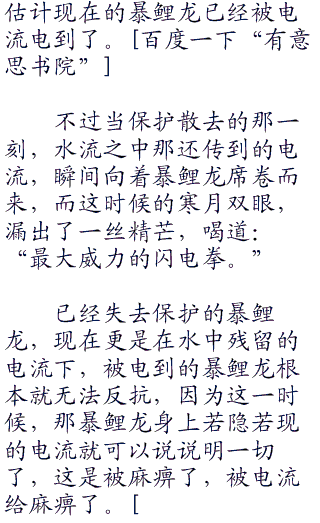 估计现在的暴鲤龙已经被电
流电到了。[百度一下“有意
思书院”]
不过当保护散去的那一
刻，水流之中那还传到的电
流，瞬间向着暴鲤龙席卷而
来，而这时候的寒月双眼，
漏出了一丝精芒，喝道：
“最大威力的闪电拳。”
已经失去保护的暴鲤
龙，现在更是在水中残留的
电流下，被电到的暴鲤龙根
本就无法反抗，因为这一时
候，那暴鲤龙身上若隐若现
的电流就可以说说明一切
了，这是被麻痹了，被电流
给麻痹了。[